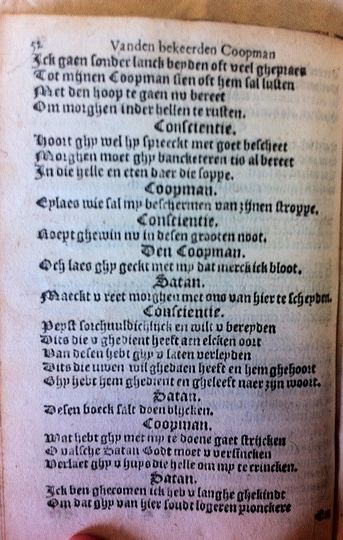 52 Vanden bekeerden Coopman
Ick gaen sonder lanck beyden oft veel ghepraets
Tot mijnen Coopman sien oft hem sal lusten
Met den hoop te gaen nv bereet
Om morghen inder hellen te rusten.
Conscientie.
Hoort ghy wel hy spreeckt met goet bescheet
Morghen moet ghy bancketeren tis al bereet
In die helle en eten daer die soppe.
Coopman.
Eylaes wie sal my beschermen van zijnen stroppe.
Conscientie.
Roept ghewin nv in desen grooten noot.
Den Coopman.
Och laes ghy geckt met my dat merck ick bloot.
Satan.
Maeckt v reet morghen met ons van hier te scheyden.
Conscientie.
Peyst sorchvuldichlijck en wilt v bereyden
Dits die v ghedient heeft aen elcken oort
Van desen hebt ghy v laten verleyden
Dits die uwen wil ghedaen heeft en hem ghehoort
Ghy hebt hem ghedient en gheleeft naer zijn woort.
Satan.
Desen boeck salt doen blijcken.
Coopman.
Wat hebt ghy met my te doene gaet strijcken
O valsche Satan Godt moet v versincken
Verlaet ghy v hups die helle om my te crincken.
Satan.
Ick ben ghecomen ick heb v langhe ghekindt
Om dat ghy van hier soudt logeren pronckere